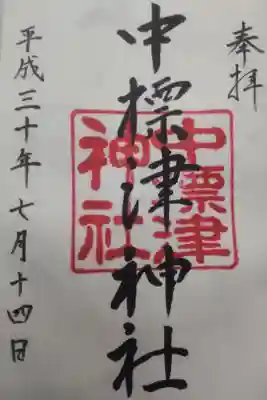 奉拝
中標津神社
中標津
神社
平成三十年七月十四日